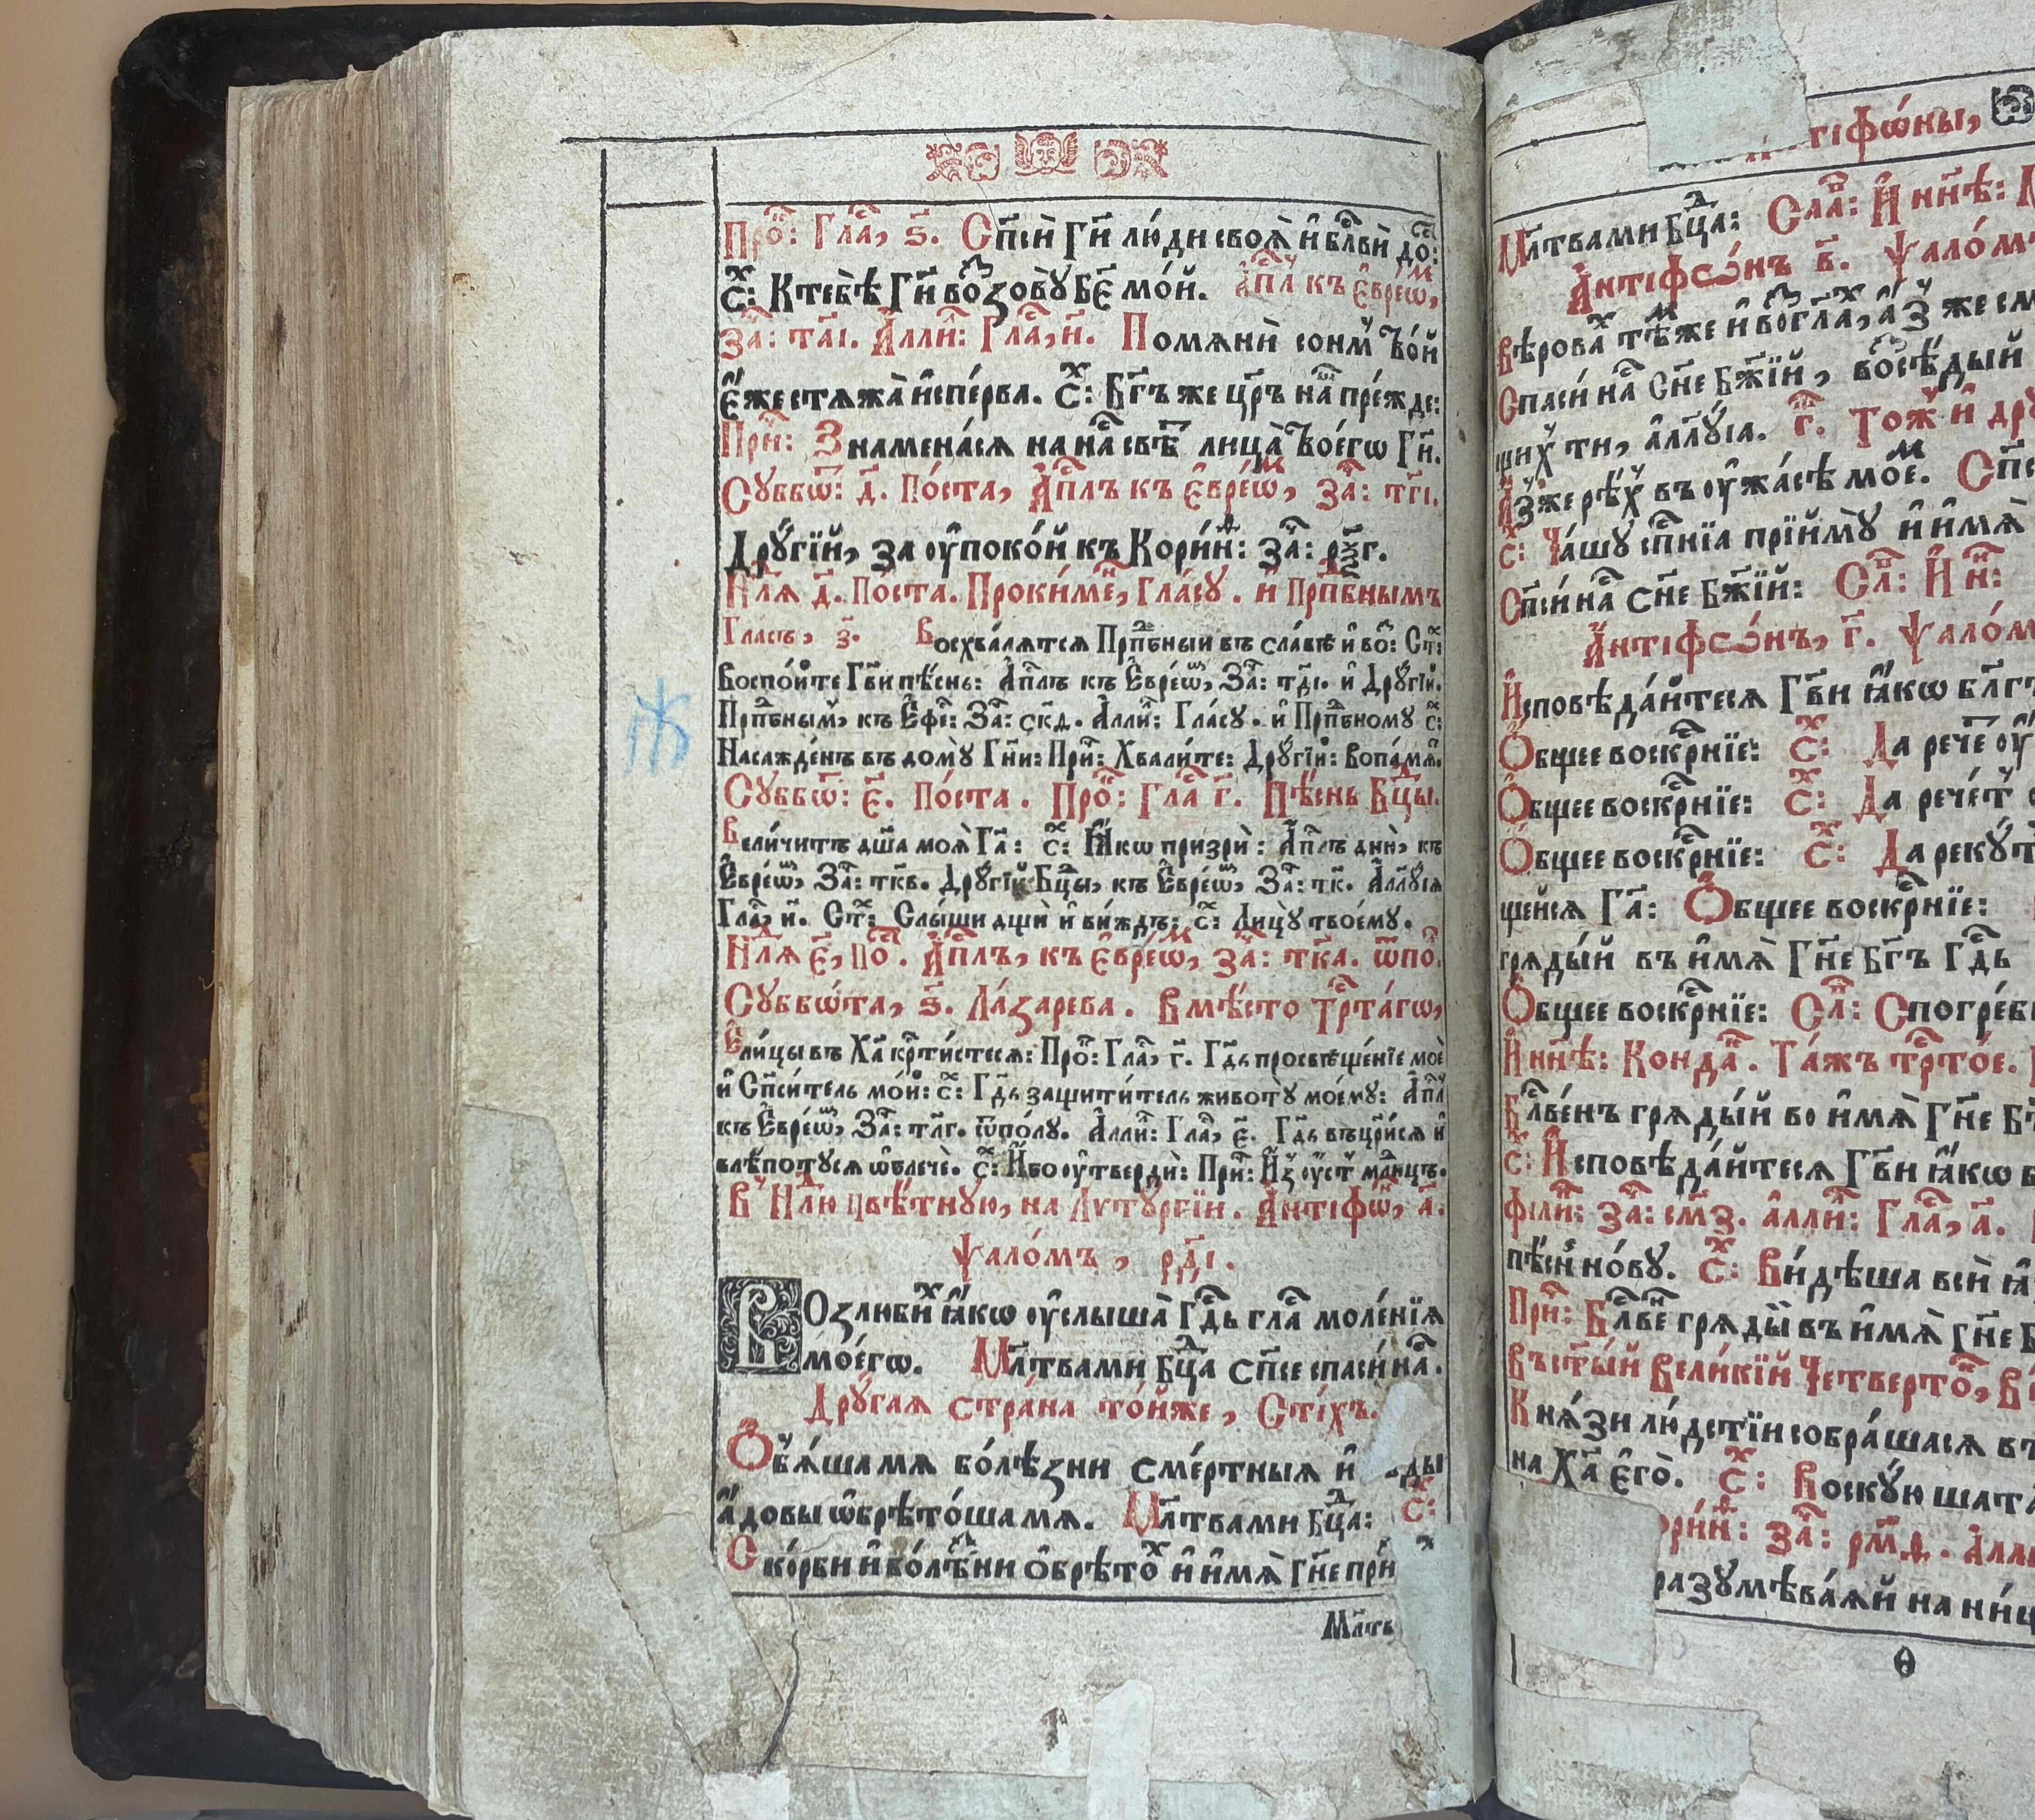 Про҇: Гла҇, ѕ҃. Сп҃сѝ Гд҃и лю́ди своѧ̀ и҆ бл҃вѝ до҇:
С҃: К тебѣ̀ Гд҃и возову̀ Бж҃е мо́й. А҆п҇лъ къ Е҆вре́ѡ,
За҇: т҃аі. А҆лли: Гла҇, и҃. Помѧнѝ сонмъ Твои
е҆́же стѧжа̀ и҆спе́рва. С҃: Бг҃ъ же цр҃ь на҇ пре́жде:
При҇: Знамена́сѧ на на҇ свѣ҇ лица̀ Твоегѡ Гд҃и.
Сꙋббѡ҇: д҃. По́ста, А҆п҇лъ къ Е҆вре́ѡ, за҇: т҃гі.
Дрꙋ́гїй, за ᲂу҆поко́й къ Кори́н: за҇: рѯ҃г.
Нлѧ д҃. По́ста. Проки́ме, Гла́сꙋ. и҆ Прпⷣбнымъ
Гласъ, з҃. Восхва́лѧтсѧ Прпⷣбнїи въ сла́вѣ и҆ во: Ст҃:
Воспо́йте Гдⷭ҇ви пѣ́снь: А҆п҇лъ къ Е҆вре́ѡм, За҇: т҃ді. и҆ Дрꙋ́гїй.
Прпⷣбным, къ Е҆фе҇: За҇: ск҃д. А҆лли: Гла́сꙋ. и҆ Прпⷣбномꙋ С҃:
Насажде́нъ въ домꙋ̀ Гдⷭ҇ни: При҇: Хвали́те: Дрꙋ́гїй: В па́мѧ.
Сꙋббѡ҇: е҃. По́ста. Про҇: Гла҇ г҃. Пѣ́снь Бцⷣы.
Вели́читъ дш҃а моѧ̀ Гдⷭ҇а: С҃: Ꙗ҆́кѡ призрѝ: А҆п҇лъ днѝ, къ
Е҆вре́ѡм, За҇: тк҃в. Дрꙋ́гїй Бцⷣы, къ Е҆вре́ѡм, За҇: тк҃. А҆ллилꙋ́їа
Гла҇, и҃. Ст҃: Слы́ши дщѝ и҆ ви́ждь: С҃: Лицꙋ̀ твоемꙋ.
Нлѧ е҃, по҇. А҆п҇лъ, къ Е҆вре́ѡм, за҇: тк҃а. ѿпо.
Сꙋббѡ́та, ѕ҃. Ла́зарева. В мѣ́сто тр҃та́гѡ,
Е҆ли́цы въ Хр҇та̀ крⷭ҇ти́стесѧ: Про҇: Гла҇, г҃. Гдⷭ҇ь просвѣще́нїе моѐ
и҆ Сп҃си́тель мо́й: С҃: Гдⷭ҇ь защити́тель животꙋ̀ моемꙋ: А҆п҇лъ
къ Е҆вре́ѡм, За҇: тл҃г. ѿпо́лꙋ. А҆лли: Гла҇, е҃. Гдⷭ҇ь въцр҃и́сѧ и҆
влѣ́потꙋсѧ ѡ҆блечѐ. С҃: И҆́бо ᲂу҆твердѝ: При҇: И҆з̾ ᲂу҆́стъ мл҇нцъ.
В̾ Нлю цвѣ́тнꙋю, на Лѵтꙋргі́и. А҆нтїфѡ, а҃.
Ѱало́мъ, рд҃і.
Возлюби́х ꙗ҆́кѡ ᲂу҆слы́ша Гдⷭ҇ь гла҇ моле́нїѧ
моегѡ. Мл҃твами Бцⷣа Сп҃се спаси́ на҇.
Дрꙋ́гаѧ страна̀ то́йже, Сті́хъ.
Ѻ҆б̾ѧ́ша мѧ болѣ́зни сме́ртныѧ и҆ ды
а҆́довы ѡ҆брѣто́ша мѧ. Мл҃твами Бцⷣа: С҃:
Ско́рби и҆ болѣ́зни ѻ҆брѣто́х и҆ и҆́мѧ Гдⷭ҇не при
Мл҃тв
Мл҃твами Бцⷣа: Сла҇: И҆ нн҃ѣ:
А҆нтїфѡ́нъ в҃. Ѱало́м
Вѣ́рова тѣ́мже и҆ возгла҇, а҆́з же см
Спаси́ на҇ Сн҃е Бж҃їй, возсѣ́дый
щих ти, а҆ллилꙋ́їа. г҃. То́ж и҆ др
А҆́з же рѣ́х въ ᲂу҆жа́сѣ мое́м. Сп҃с
С҃: Ча́шꙋ сп҃нїѧ прїимꙋ̀ и҆ и҆́мѧ
Сп҃си́ на҇ Сн҃е Бж҃їй: Сл҃: И҆ н҃:
А҆нтїфѡ́нъ, г҃. Ѱало́м
И҆сповѣ́дайтесѧ Гдⷭ҇ви ꙗ҆́кѡ бл҃г
Ѻ҆́бщее воскрⷭ҇нїе: С҃: Да рече́т
Ѻ҆́бщее воскрⷭ҇нїе: С҃: Да рече́т
Ѻ҆́бщее воскрⷭ҇нїе: С҃: Да рекꙋ́т
щейсѧ Гдⷭ҇а: Ѻ҆́бщее воскрⷭ҇нїе:
грѧды́й въ и҆́мѧ Гдⷭ҇не Бг҃ъ Гдⷭ҇ь
Ѻ҆́бщее воскрⷭ҇нїе: Сл҃: Спогре́б
И҆ нн҃ѣ: Конда҇. Та́жъ тр҃то́е.
Бл҃ве́нъ грѧды́й во и҆́мѧ Гдⷭ҇не
С҃: И҆сповѣ́дайтесѧ Гдⷭ҇ви ꙗ҆́кѡ
філи: за҇: см҃з. а҆лли: Гла҇, а҃.
пѣ́снь но́вꙋ. С҃: Ви́дѣша всѝ
При҇: Бл҃ве́н грѧды́й въ и҆́мѧ Гдⷭ҇не
Въ ст҃ы́й Вели́кїй Четверто́к,
Кнѧ́зи лю́дстїи собра́шасѧ
на Хр҇та̀ е҆гѡ̀. С҃: Воскꙋ́ю шата
за҇: рм҃ѳ. А҆лли
разꙋмѣва́ѧй на ни́щ
Ѳ